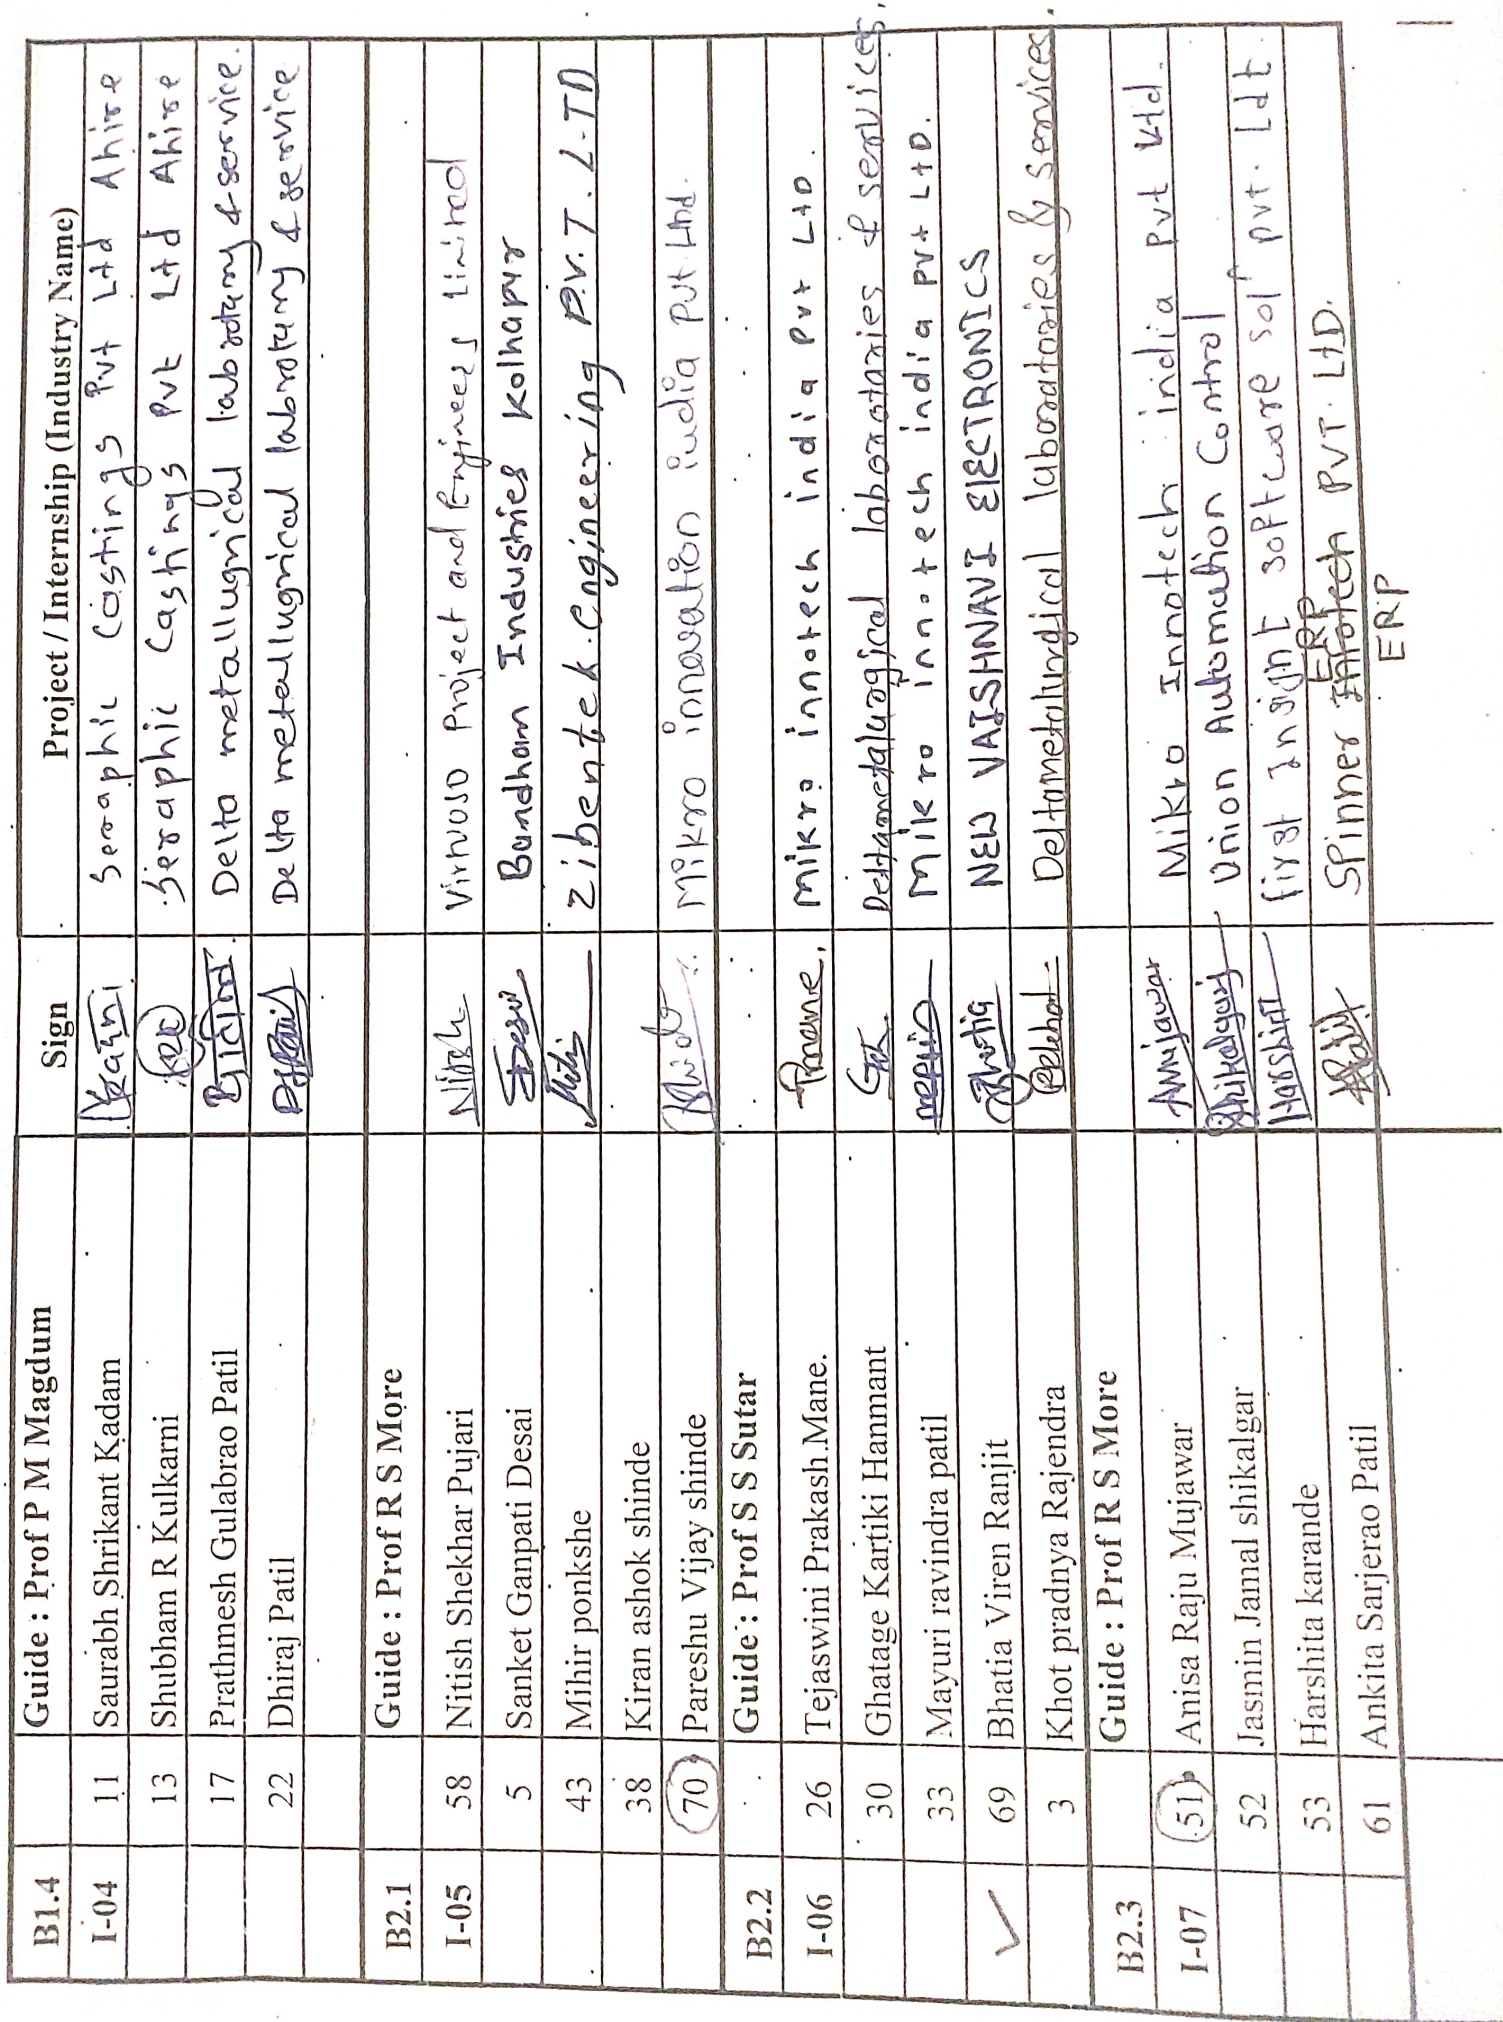 B1.4 Guide : Prof P M Magdum Sign Project / Internship (Industry Name)
I-04 11 Saurabh Shrikant Kadam Seraphic Castings Pvt Ltd Ahire
13 Shubham R Kulkarni Seraphic Castings Pvt Ltd Ahire
17 Prathmesh Gulabrao Patil Delta metallugrical labrotary & service.
22 Dhiraj Patil Delta metallugrical labrotary & service
B2.1 Guide : Prof R S More
I-05 58 Nitish Shekhar Pujari Nitish Virtuoso Project and Engineers Limited
5 Sanket Ganpati Desai Desai Bandham Industries Kolhapur
43 Mihir ponkshe Zibentek Engineering P.V.T. L-TD
38 Kiran ashok shinde
70 Pareshu Vijay shinde Mikro innovation india Pvt. Ltd.
B2.2 Guide : Prof S S Sutar
I-06 26 Tejaswini Prakash Mane. Tmane. Mikro innotech india Pvt LtD.
30 Ghatage Kartiki Hanmant Deltametalurgical laborotaries & services.
33 Mayuri ravindra patil Mikro innotech india Pvt LtD.
69 Bhatia Viren Ranjit NEW VAISHNAVI ElECTRONICS
3 Khot pradnya Rajendra Deltametalurgical laboratories & services.
B2.3 Guide : Prof R S More
I-07 51 Anisa Raju Mujawar Amujawar Mikro Innotech india Pvt Ltd.
52 Jasmin Jamal shikalgar Shikalgarj Union Automation Control
53 Harshita karande Harshita first Insight software solⁿ pvt. Ldt
61 Ankita Sarjerao Patil Spinner ERP PVT. LtD.
ERP